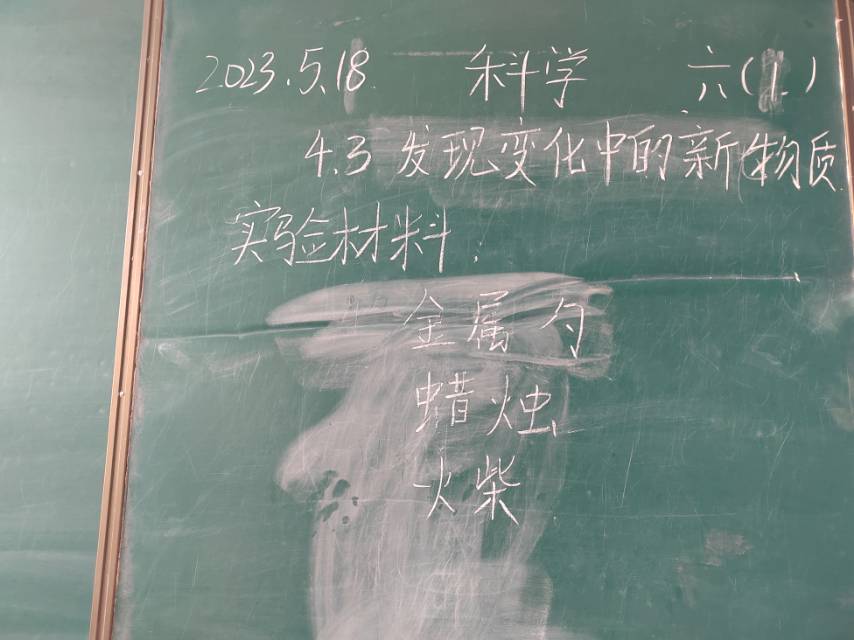 2023.5.18 科学 六(1.)
4.3 发现变化中的新物质
实验材料:
金属勺
蜡烛
火柴